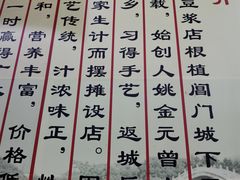 豆浆店根植阊门城下
载，始创人姚金元曾
乡，习得手艺，返城
家生计而摆摊设店。
艺传统，汁浓味正，
和，营养丰富，价格
一时赢得